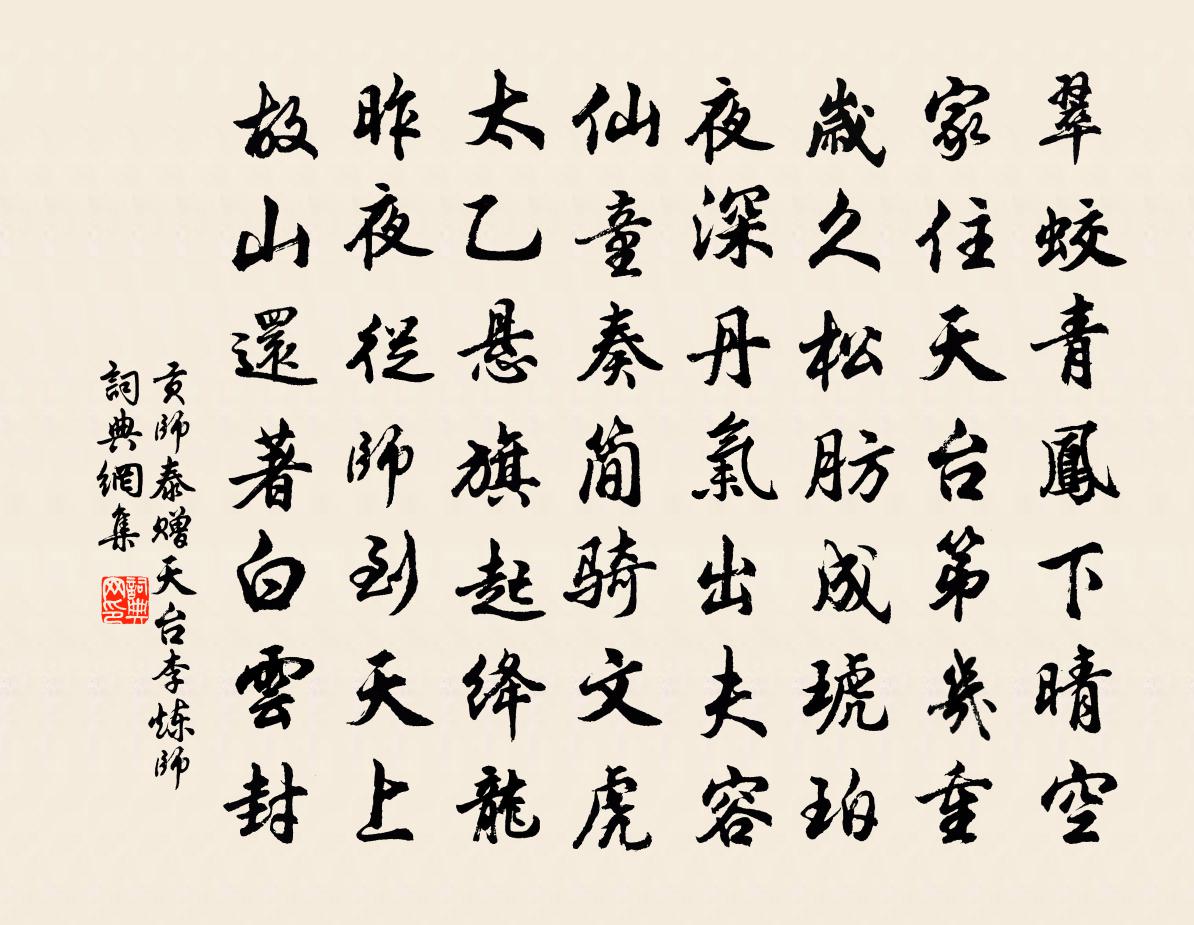 翠蛟青鳳下晴空
家住天台第幾重
歲久松肪成琥珀
夜深丹氣出夫容
仙童奏简騎文虎
太乙悬旗起绛龍
昨夜從師到天上
故山還著白雲封
贡師泰赠天台李炼師
詞典網集
詞典网印